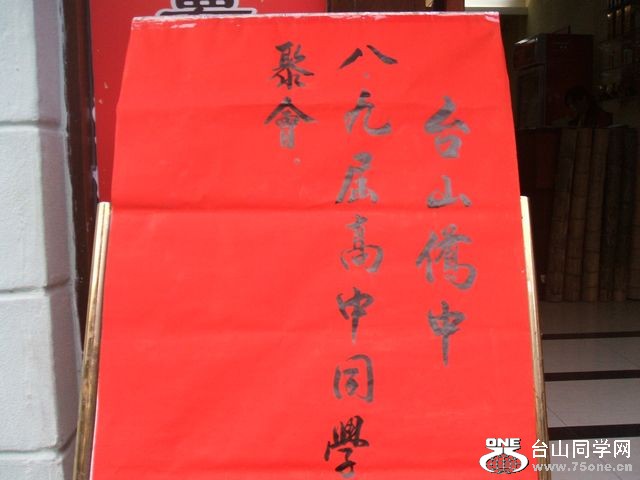 台山僑中
八九届高中同學
聚會
ONE
台山同学网
www.75one.cn